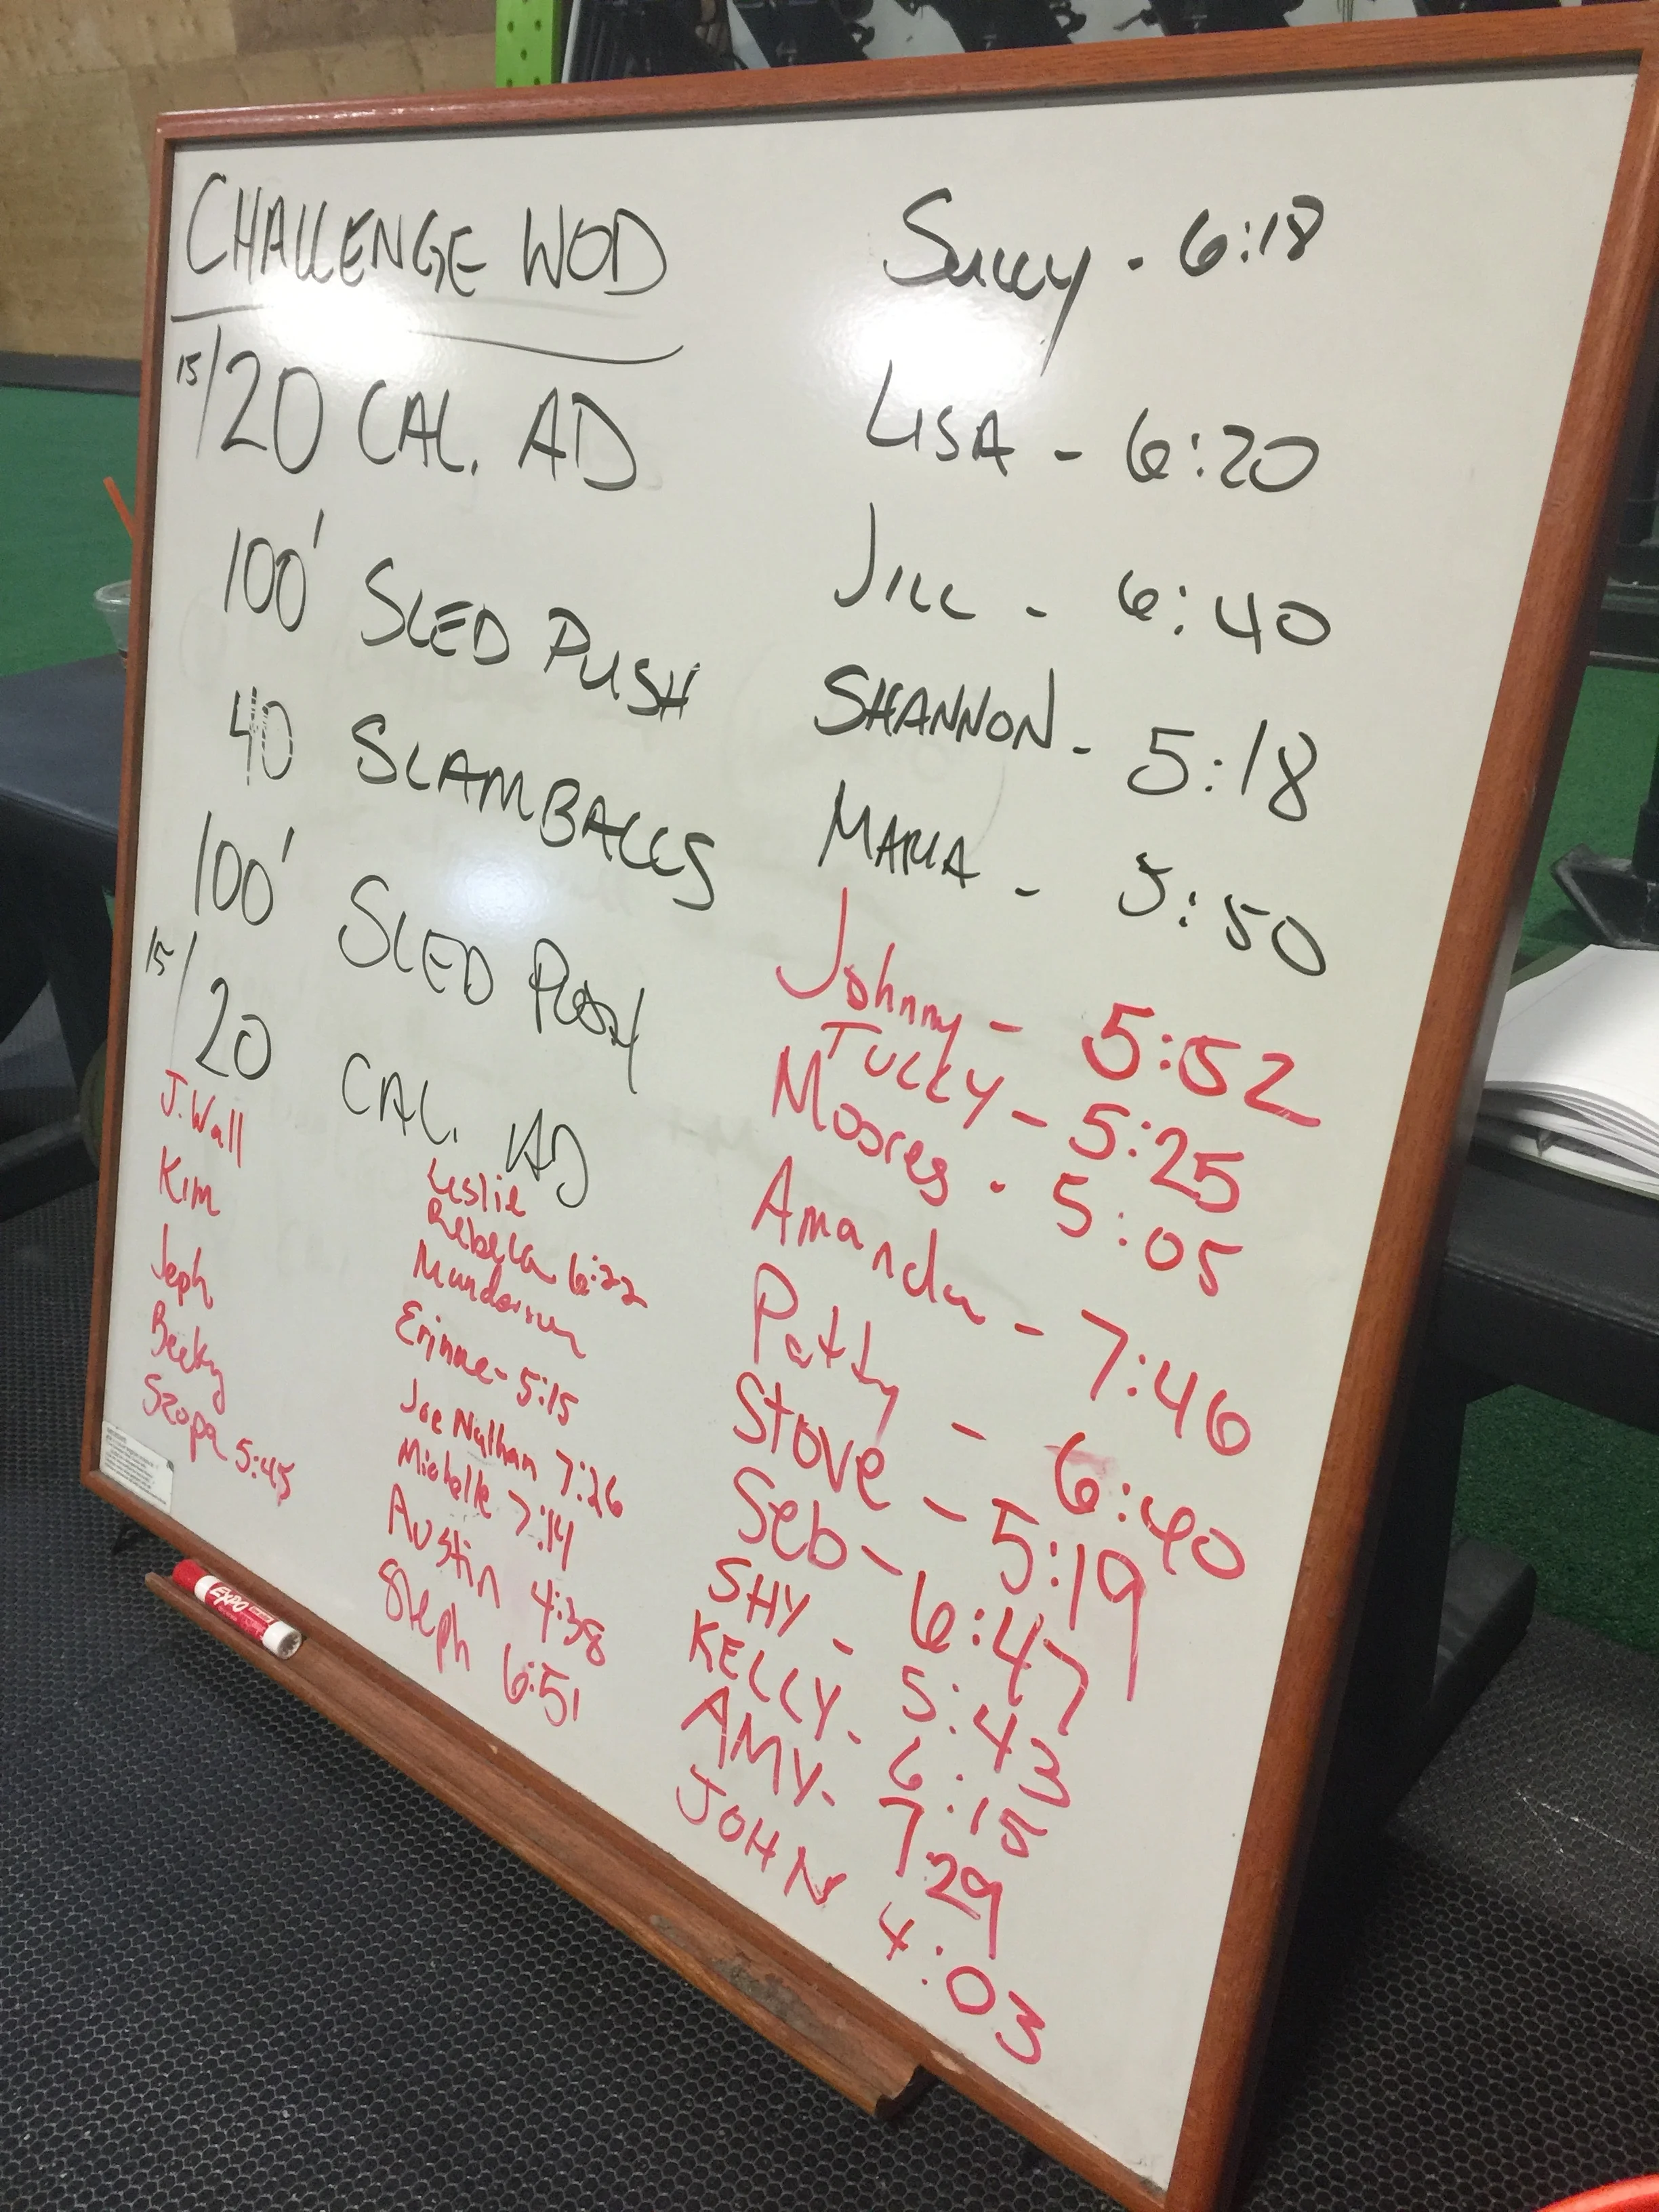 CHALLENGE WOD
15/20 CAL. AD
100' SLED PUSH
40 SLAMBALLS
100' SLED PUSH
15/20 CAL. AD
J. Wall
Kim
Jeph
Becky
Szopa 5:45
Leslie
Rebecca 6:22
Erinne - 5:15
Joe Nathan 7:26
Michelle 7:14
Austin 4:38
Steph 6:51
Sully - 6:18
LISA - 6:20
JILL - 6:40
SHANNON - 5:18
MARIA - 5:50
Johnny - 5:52
TULLY - 5:25
Moores - 5:05
Amanda - 7:46
Patty - 6:40
Steve - 5:19
Seb - 6:47
SHY - 5:43
KELLY - 6:15
AMY - 7:29
JOHN 4:03
EXPO